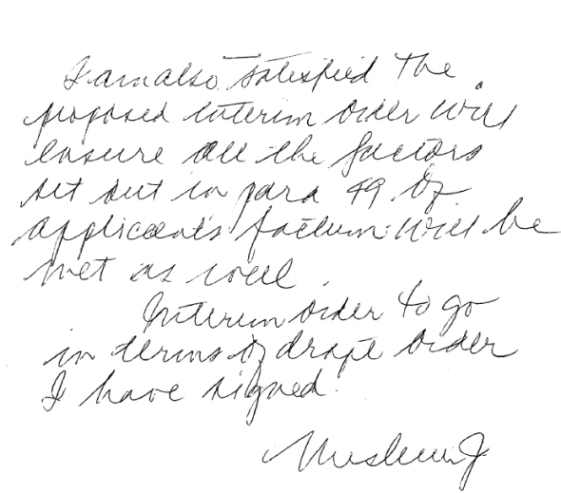 I am also satisfied the
proposed interim order will
ensure all the factors
set out in para 49 of
applicant's factum will be
met as well.
Interim order to go
in terms of draft order
I have signed.
J